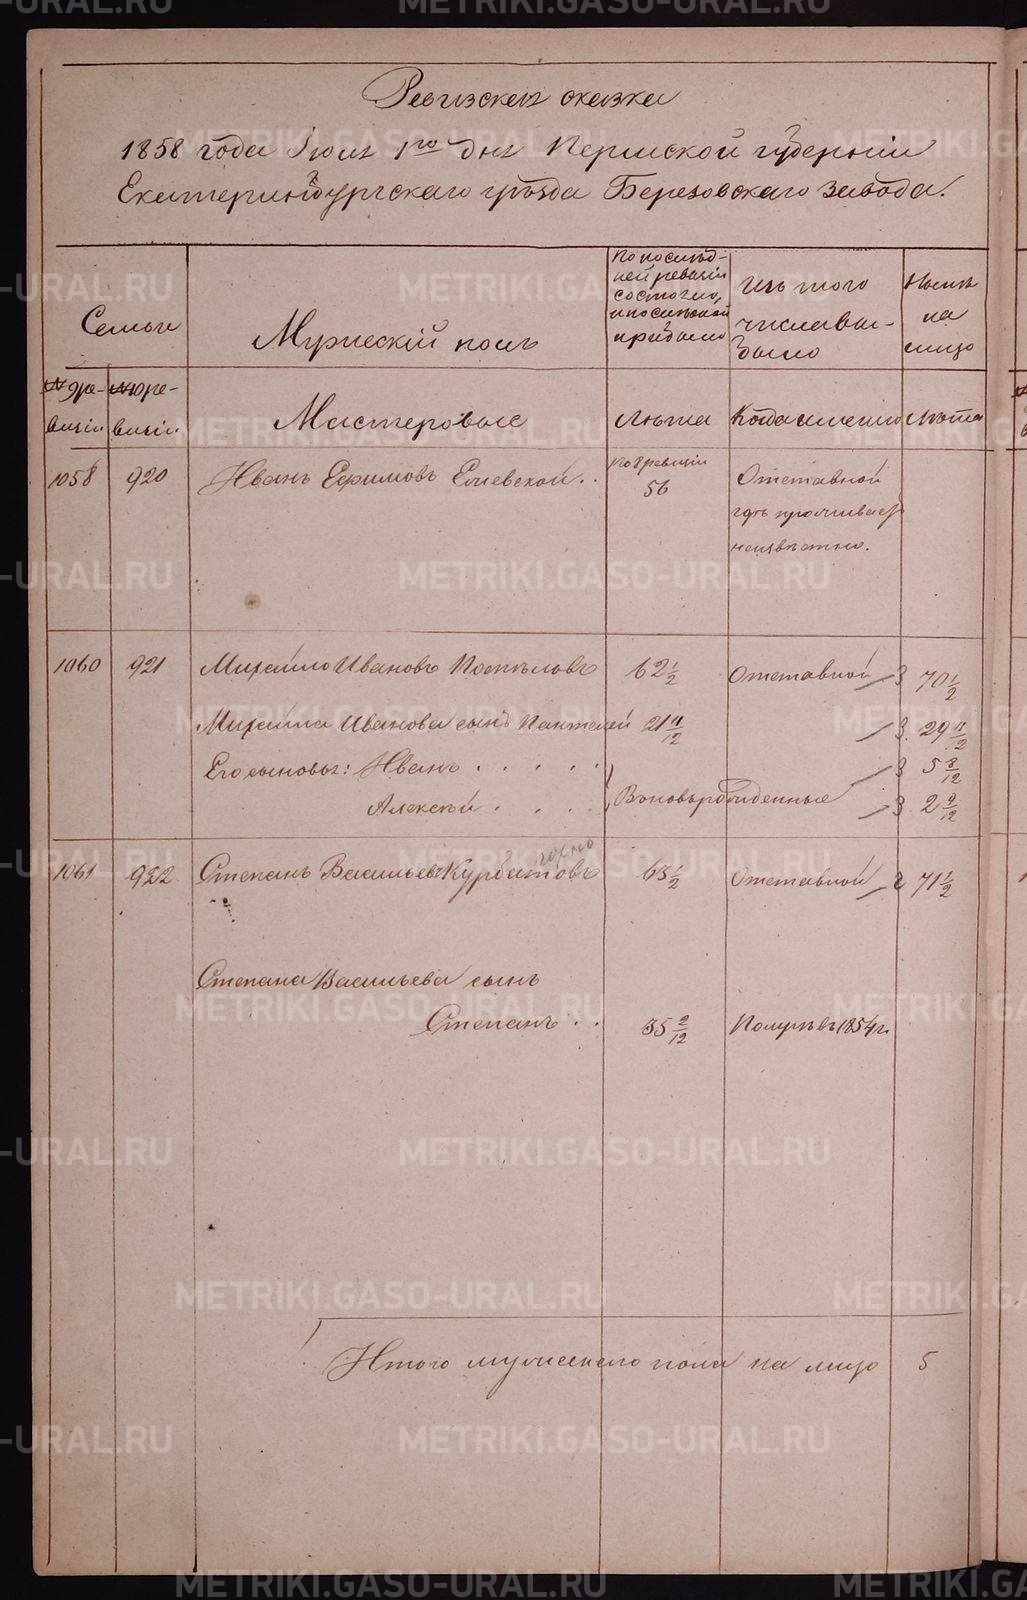 Ревизская сказка
1858 года Iюля 1го дня Пермской губернiи
Екатеринбургскаго уѣзда Березовскаго завода.
Семьи
Мужескiй полъ
По послѣд-
ней ревизiи
состояло,
и послѣ того
прибыло
Изъ того
числа вы-
было
Нынѣ
на
лицо
№ 9 ре-
визiи
№ 10 ре-
визiи
Мастеровые
Лѣта
Когда именно
Лѣта
1058 920 Иванъ Ефимовъ по 9 ревизiи 56 Отставной
гдѣ проживаетъ
неизвѣстно.
1060 921 Михайло Ивановъ Постѣловъ 62 1/2 Отставной 3 70 1/2
Михайла Иванова сынъ Пантелей 21 11/12 3. 29 11/12
Его сыновья: Иванъ . . . . . 3 5 8/12
Алексѣй . . . . Вновьрожденные 3. 2 9/12
1061 922 Степанъ Васильевъ Курбатовъ 63 1/2 Отставной 2 71 1/2
Степана Васильева сынъ
Степанъ . . 35 2/12 Померъ въ 1854 г.
Итого мужескаго пола на лицо 5
METRIKI.GASO-URAL.RU